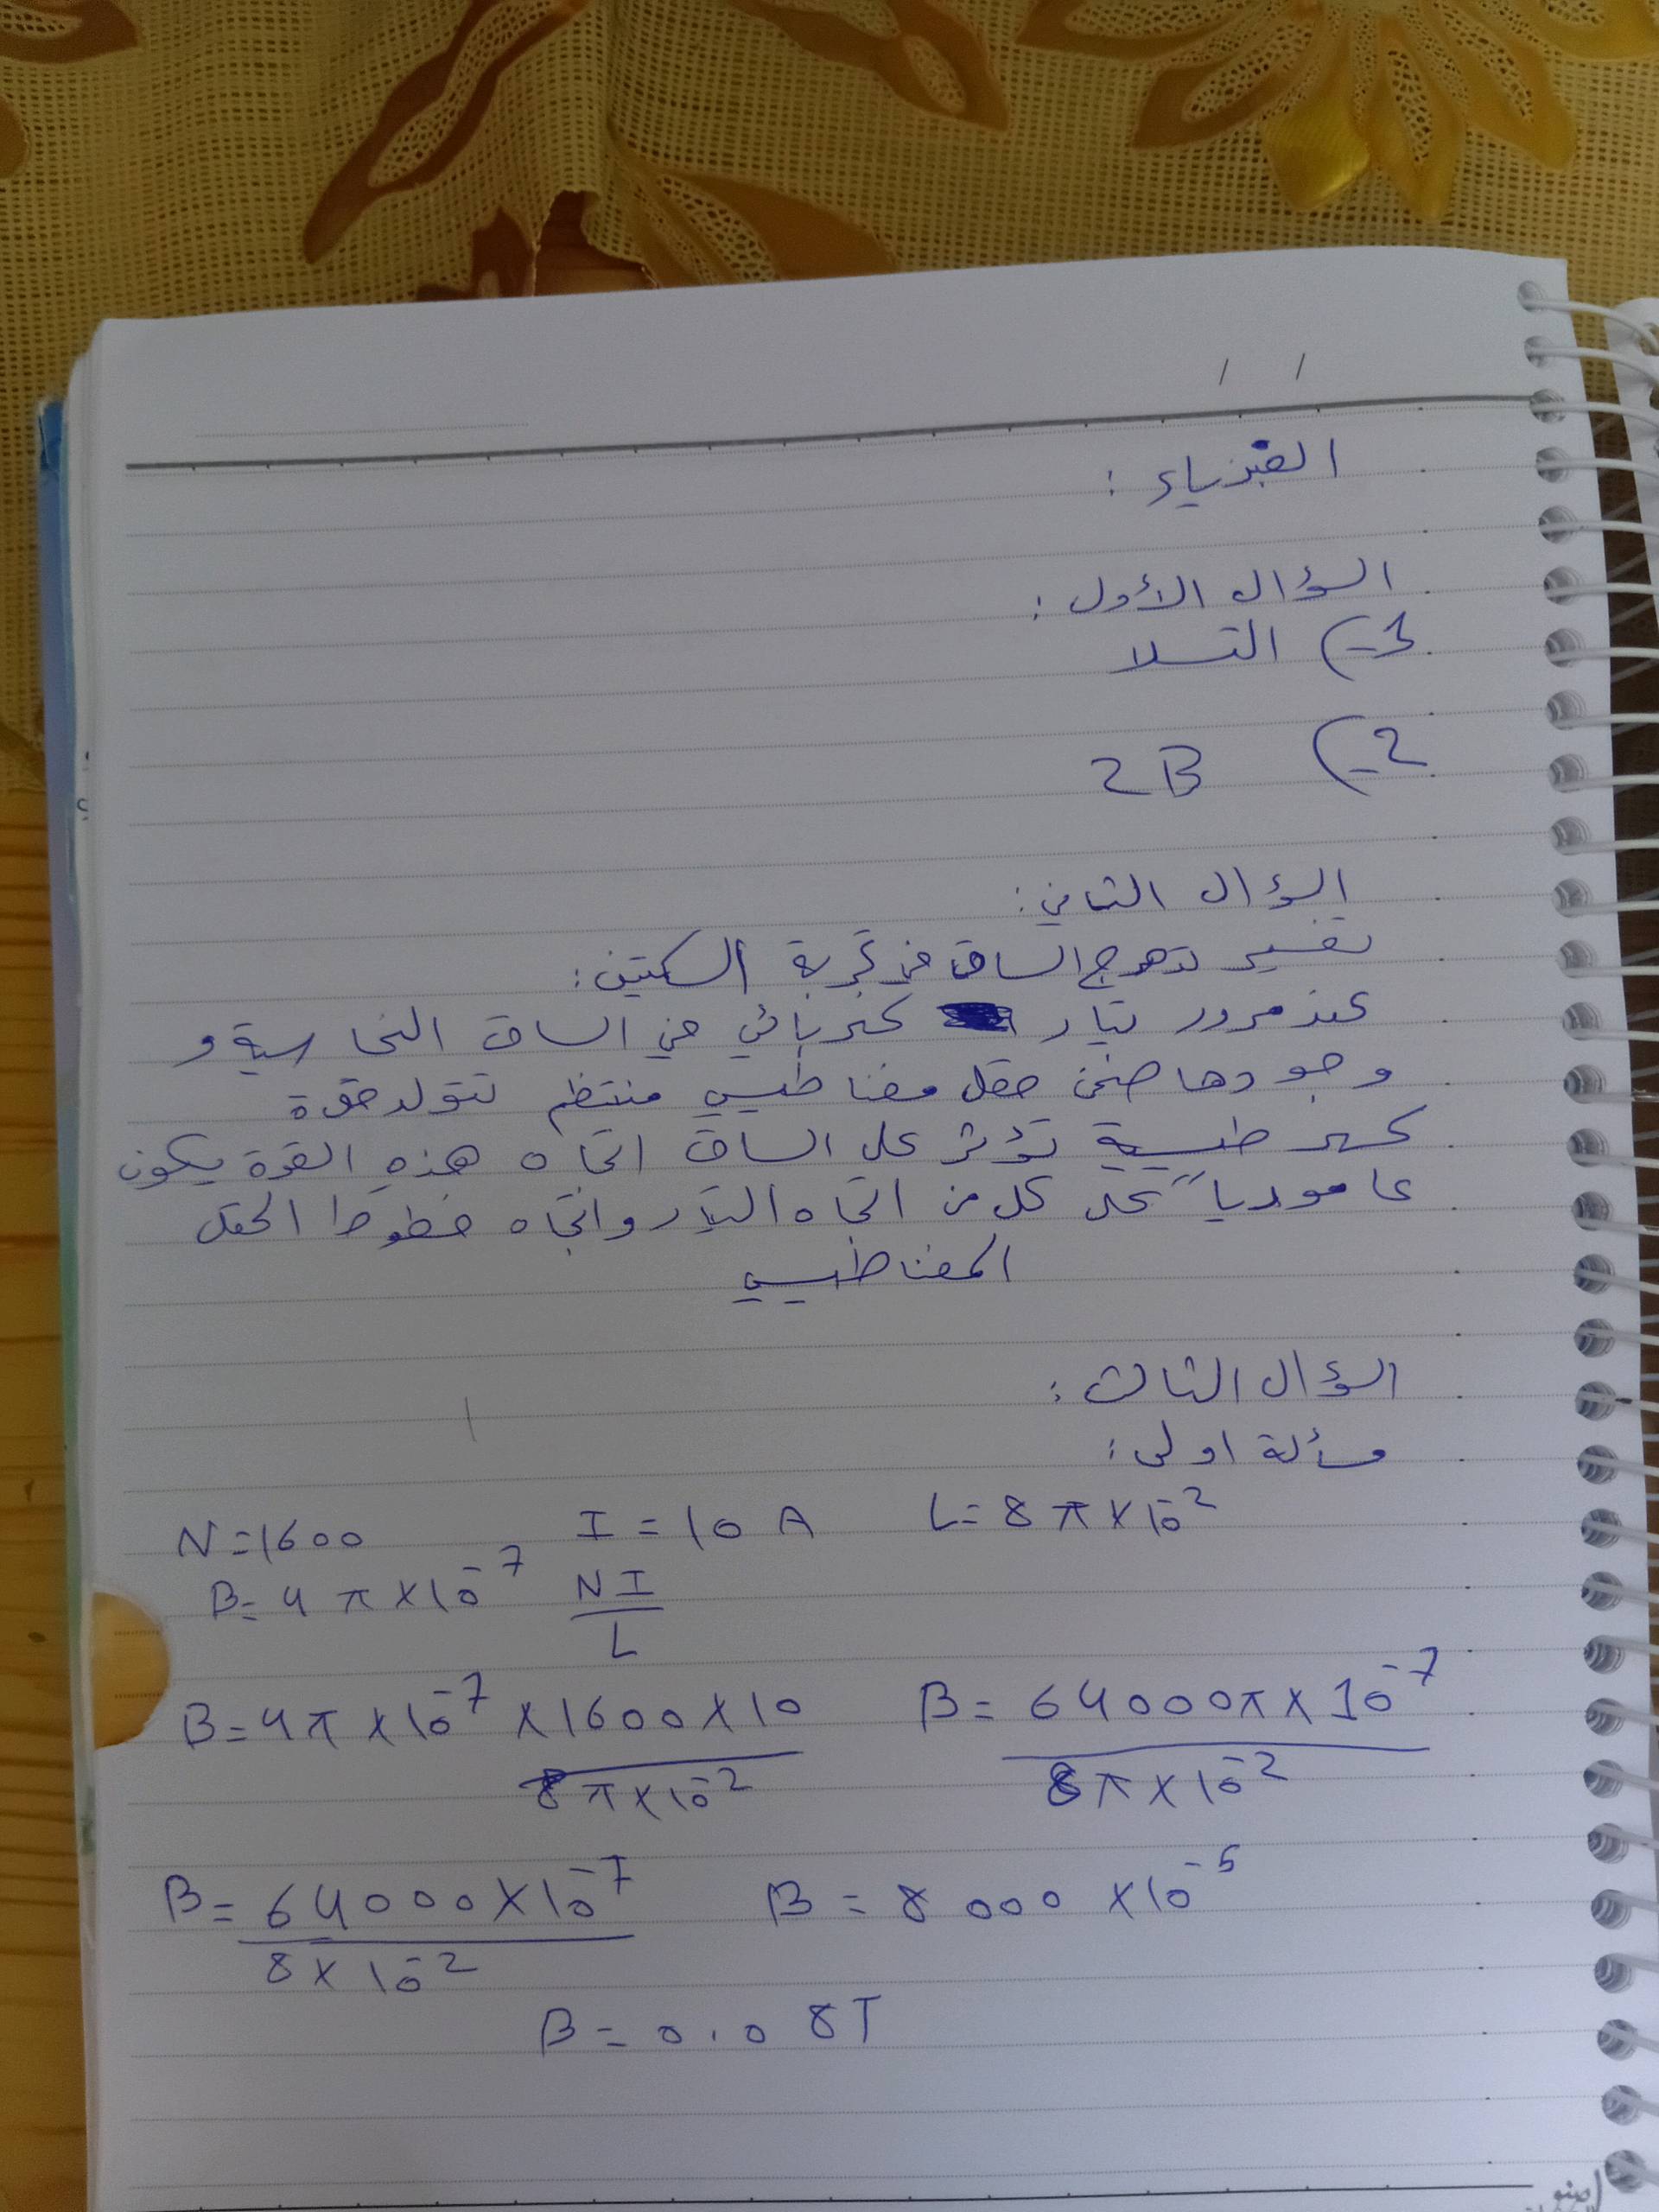 الفيزياء :
السؤال الأول :
1-) التسلا
2-) 2B
السؤال الثاني :
تفسير تدحرج الساق في تجربة السكتين :
عند مرور تيار كهربائي في الساق النحاسية و
وجودها ضمن حقل مغناطيسي منتظم تتولد قوة
كهرطيسية تؤثر على الساق اتجاه هذه القوة يكون
عاموديا" على كل من اتجاه التيار واتجاه خطوط الحقل
المغناطيسي
السؤال الثالث :
مسألة اولى :
N=1600 I = 10 A L= 8 π × 10^-2
B= 4 π × 10^-7 NI/L
B= 4π × 10^-7 × 1600 × 10 / 8π × 10^-2 B= 64000π × 10^-7 / 8π × 10^-2
B= 64000 × 10^-7 / 8 × 10^-2 B = 8000 × 10^-5
B= 0.08T